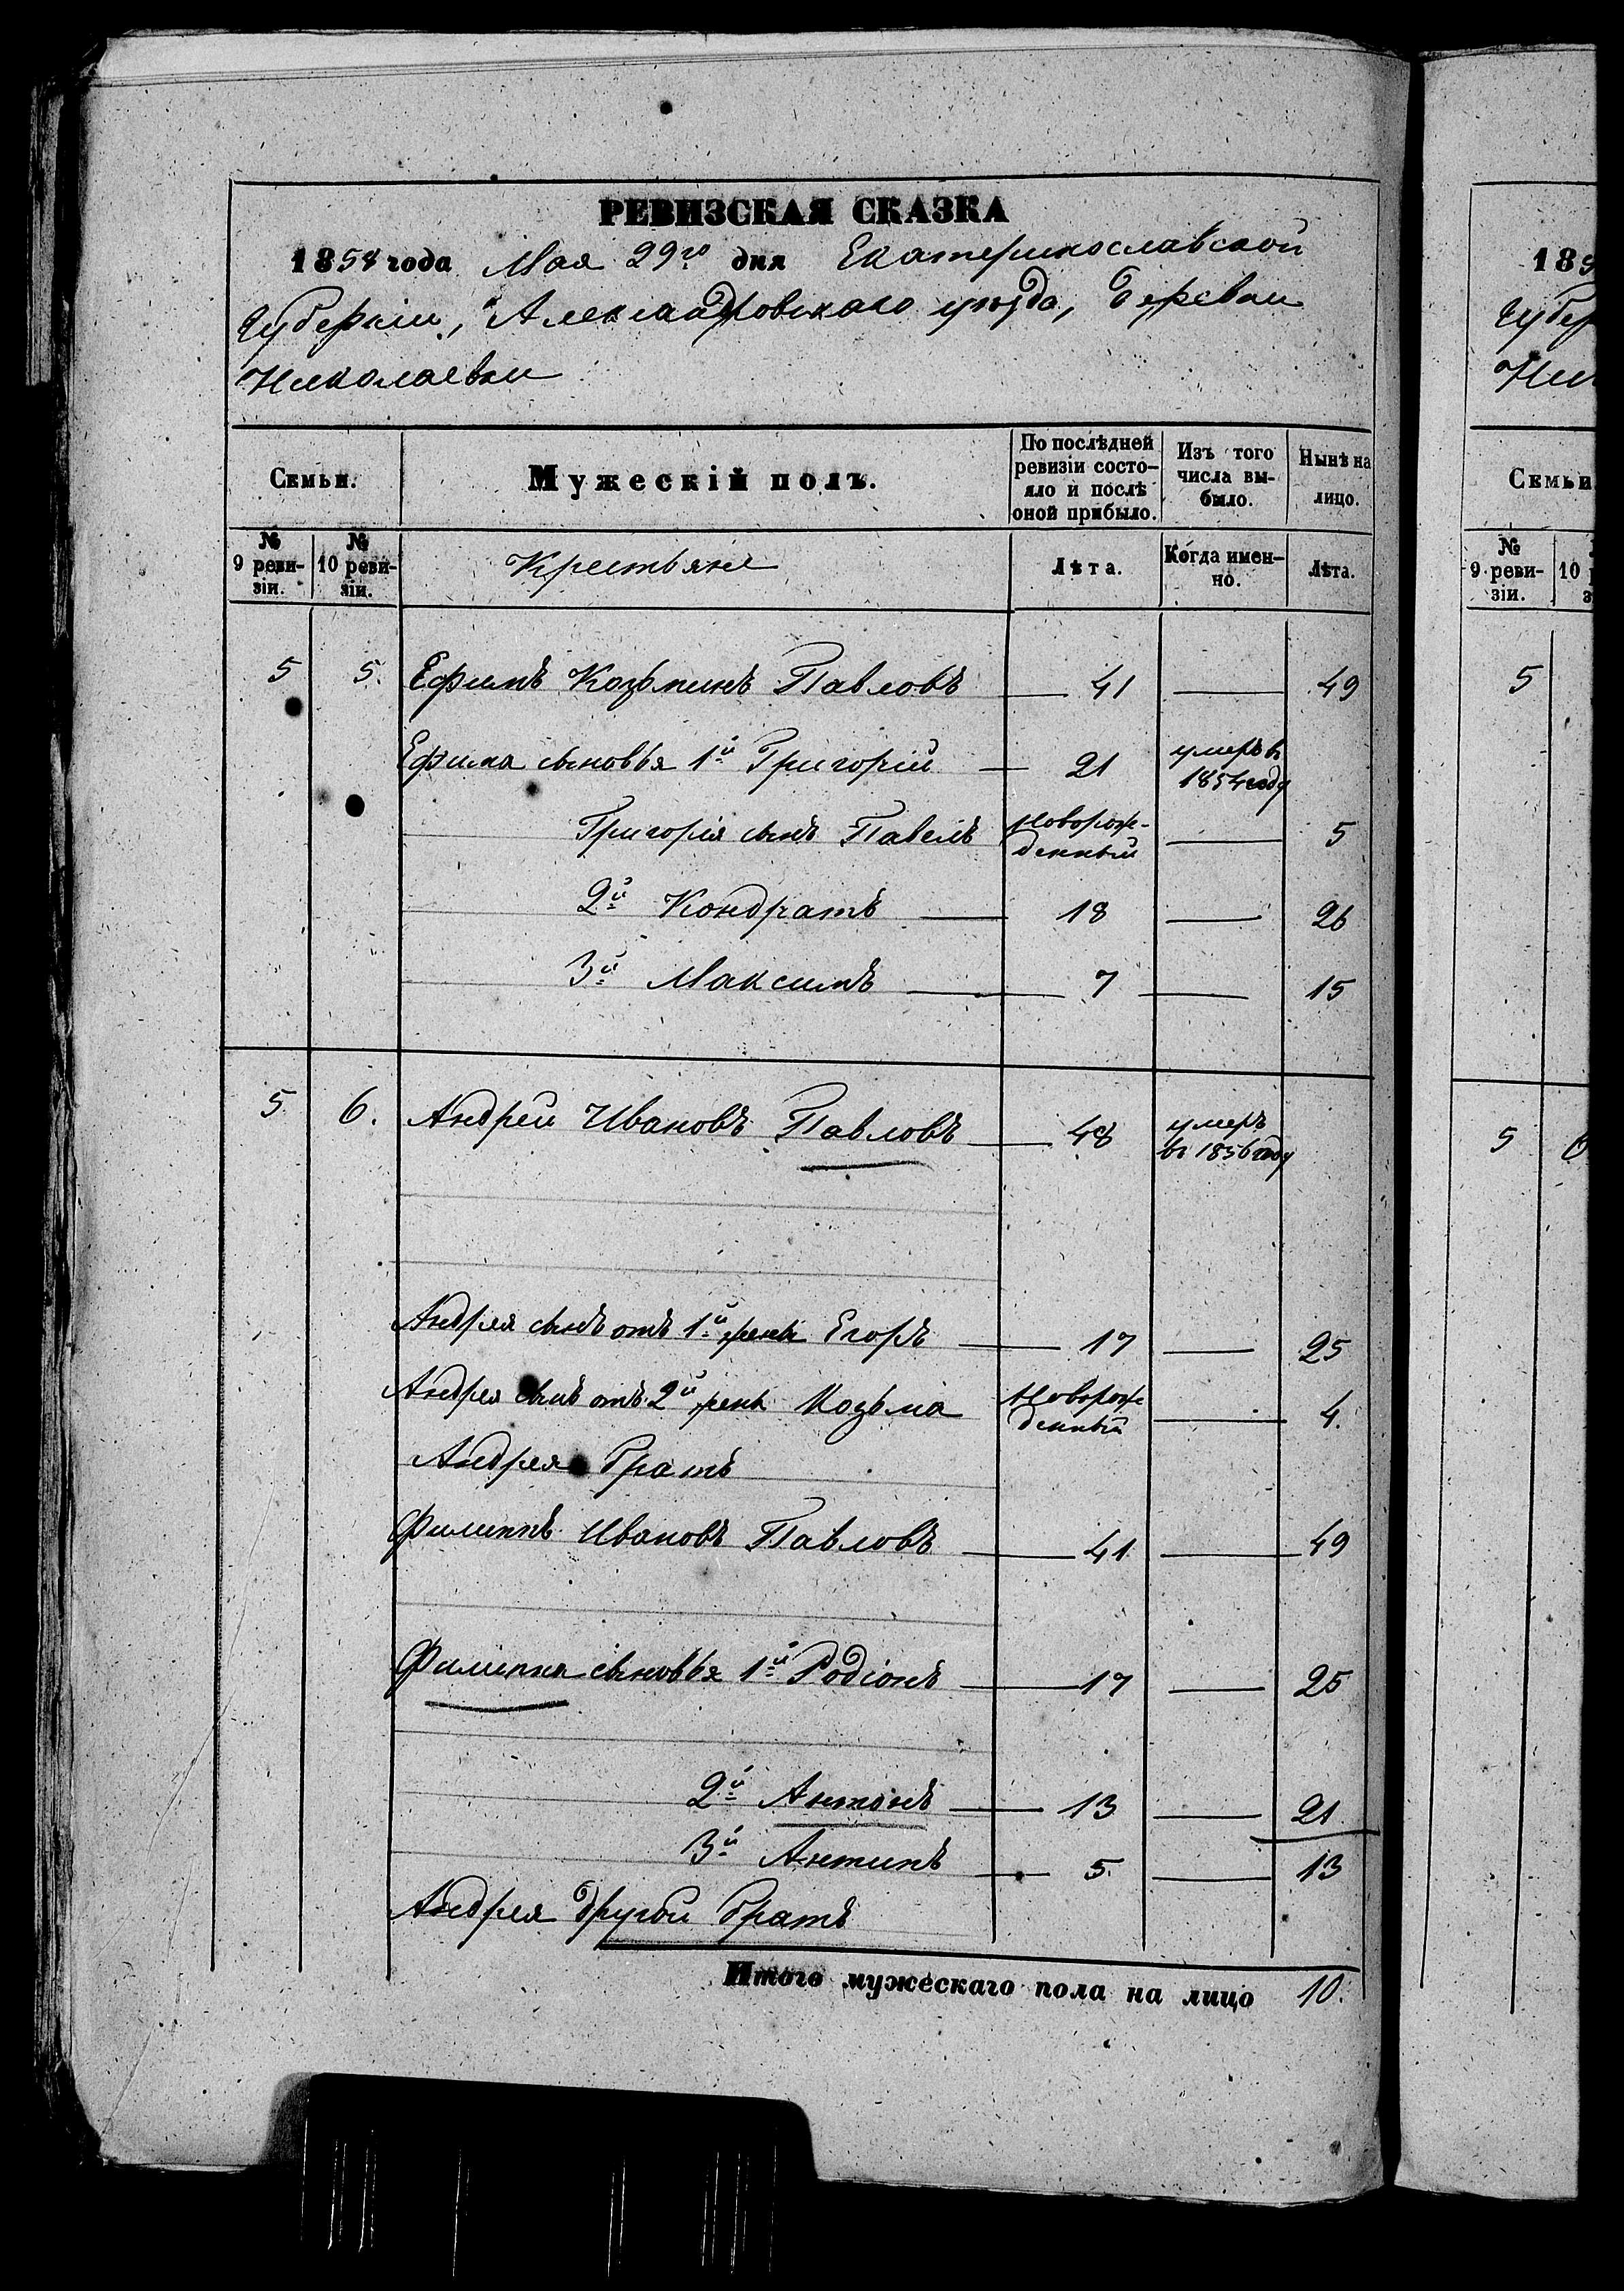 РЕВИЗСКАЯ СКАЗКА
1858 года Мая 29го дня Екатеринославской
Губерніи, Александровскаго уѣзда, деревни
Николаевки
Семьи.
Мужескій полъ.
По послѣдней
ревизіи состо-
яло и послѣ
оной прибыло.
Изъ того
числа вы-
было.
Нынѣ на
лицо.
№
9 реви-
зіи.
№
10 реви-
зіи.
Крестьяне
Лѣта.
Когда имен-
но.
Лѣта.
5 5. Ефимъ Козьминъ Павловъ 41 49
Ефима сыновья 1й Григорій 21 умеръ въ 1854 году
Григорія сынъ Павелъ новорож-
денный 5
2й Кондратъ 18 26
3й Максимъ 7 15
5 6. Андрей Ивановъ Павловъ 48 умеръ
въ 1856 году
Андрея сынъ отъ 1й жены Егоръ 17 25
Андрея сынъ отъ 2й жены Козьма новорож
денный 4.
Андрея братъ
Филиппъ Ивановъ Павловъ 41 49
Филиппа сыновья 1й Родіонъ 17 25
2й Антонъ 13 21
3й Антипъ 5. 13
Андрея другой братъ
Итого мужескаго пола на лицо 10.
185
Губер
Ник
Семьи
№
9 реви-
зіи.
10
5
5 6